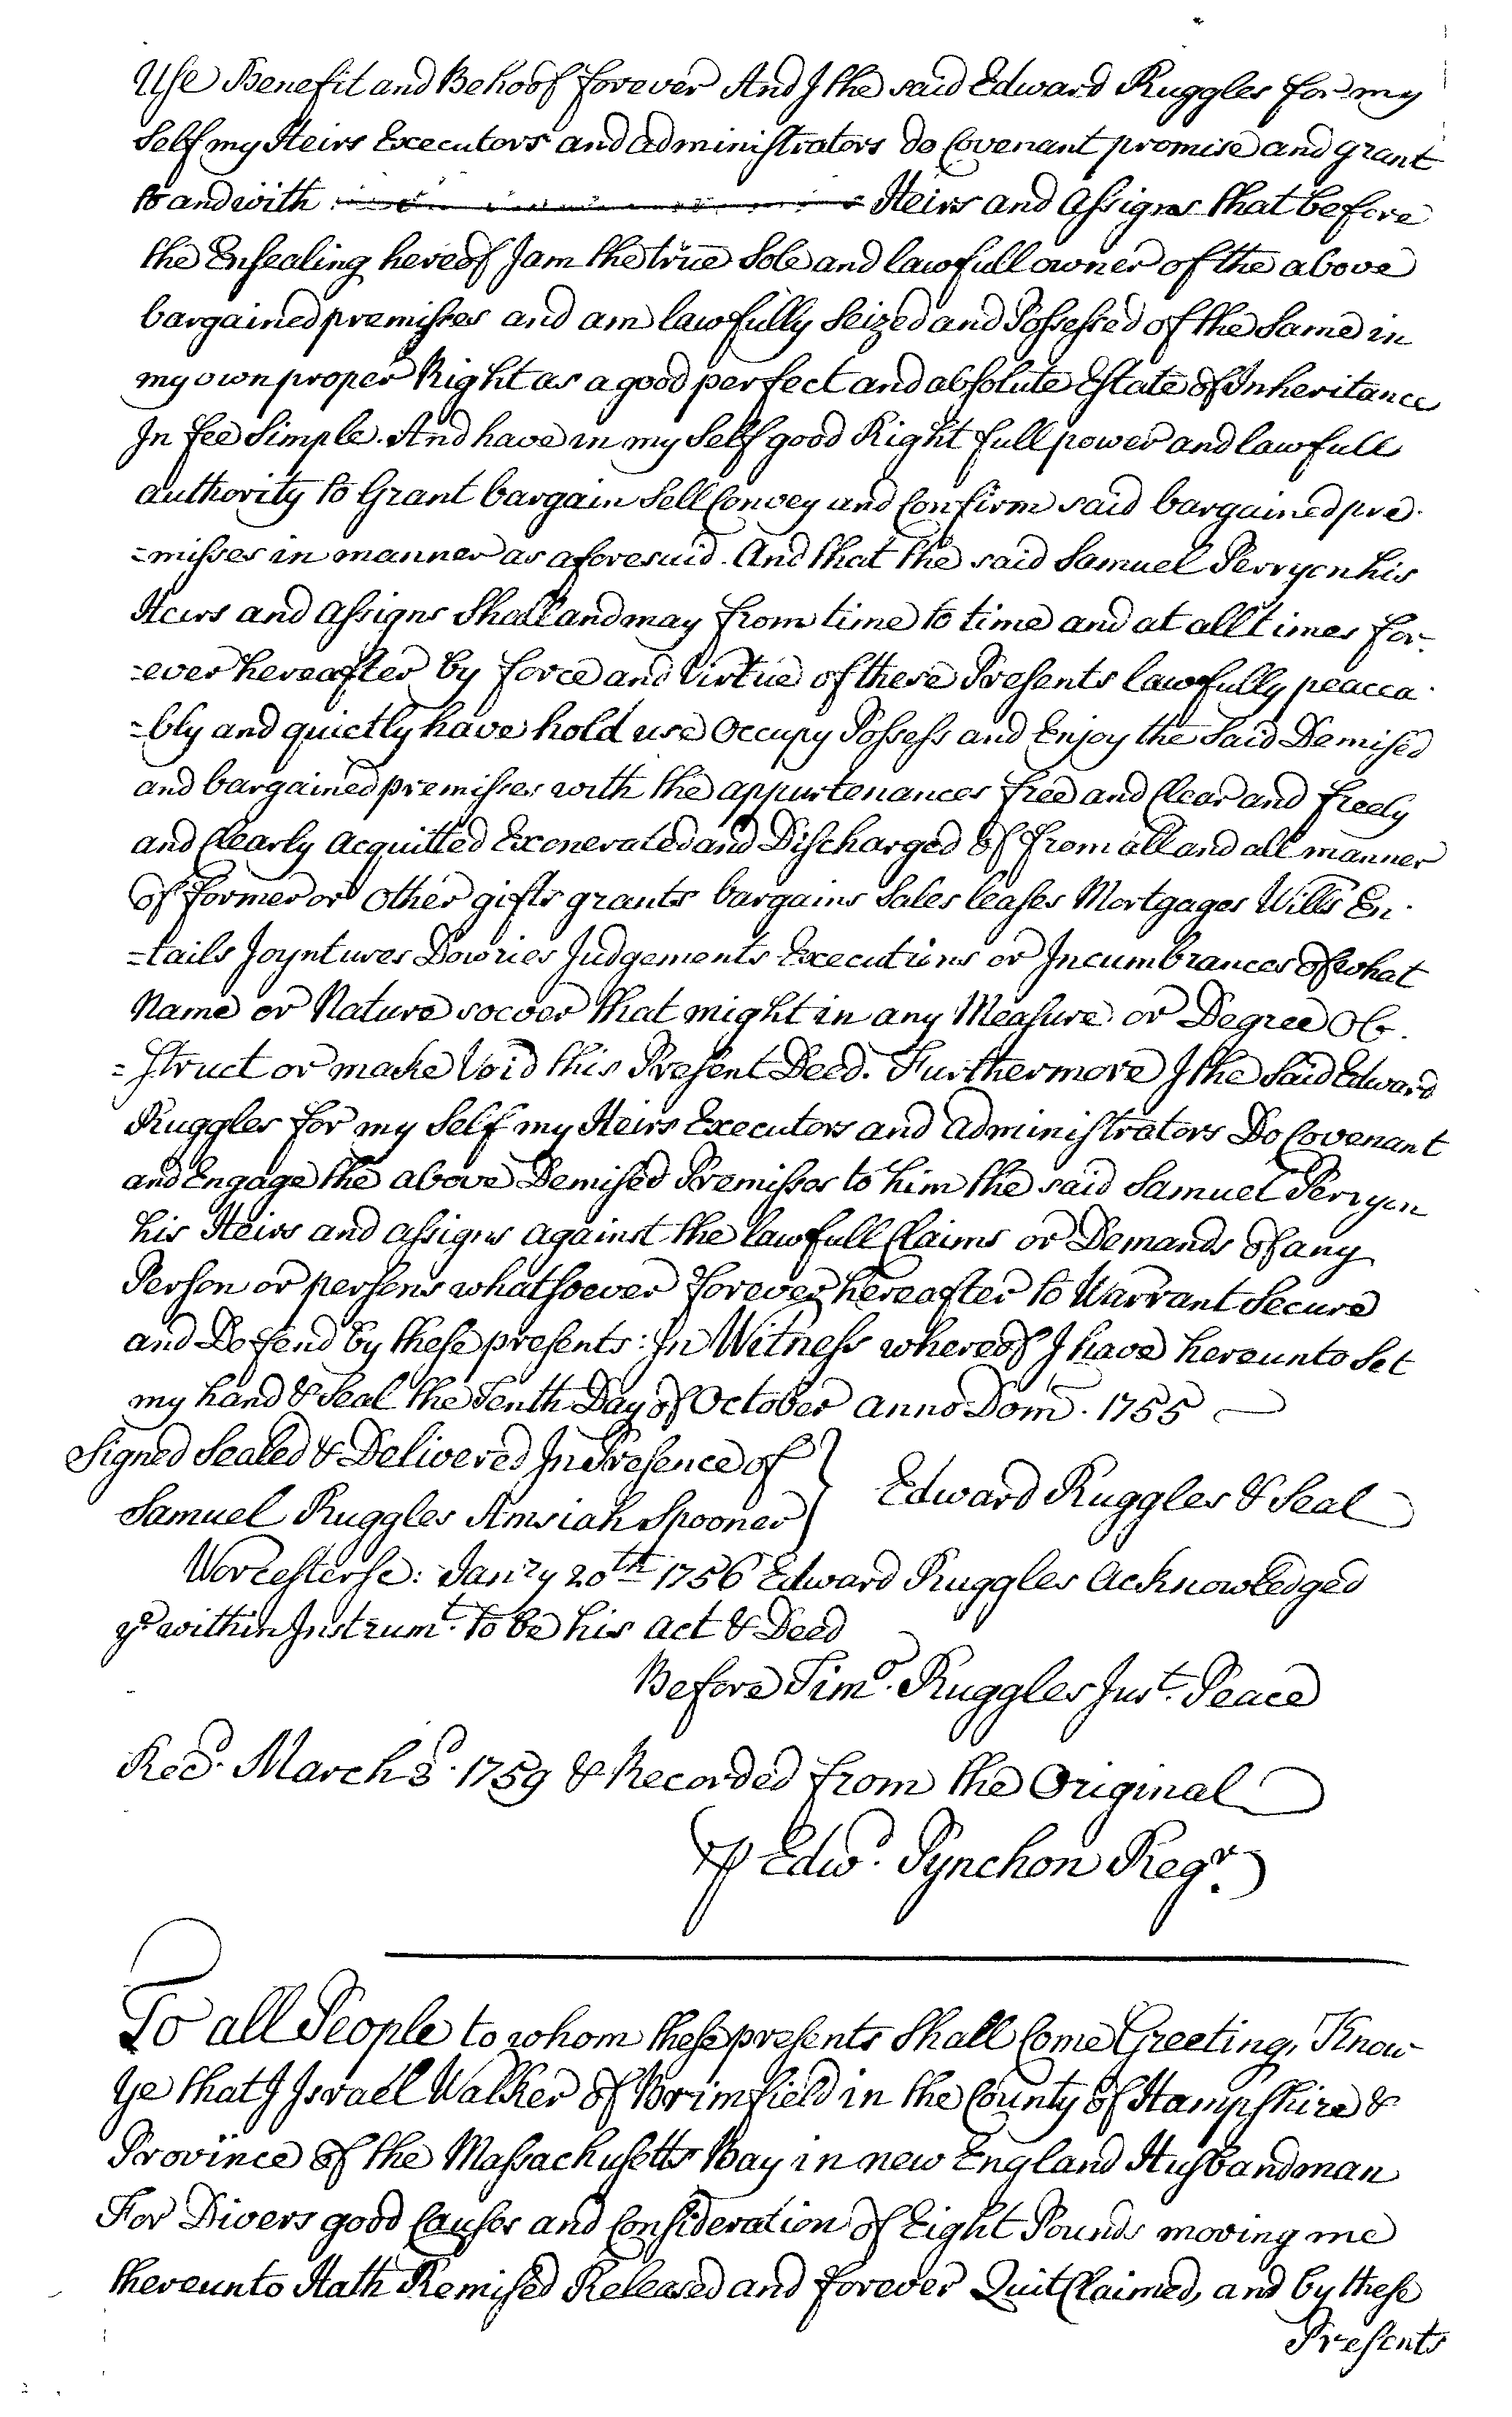 Use Benefit and Behoof forever And I the said Edward Ruggles for my
Self my Heirs Executors and administrators do Covenant promise and grant
to and with Heirs and Assigns that before
the Ensealing hereof I am the true Sole and lawfull owner of the above
bargained premisses and am lawfully Seized and Possessed of the Same in
my own proper Right as a good perfect and absolute Estate of Inheritance
In fee Simple. And have in my Self good Right full power and lawfull
authority to Grant bargain Sell Convey and Confirm said bargained pre-
=misses in manner as aforesaid. And that the said Samuel Perryon his
Heirs and Assigns Shall and may from time to time and at all times for-
=ever hereafter by force and Virtue of these Presents lawfully peacea-
=bly and quietly have hold use Occupy Possess and Enjoy the Said Demised
and bargained premisses with the appurtenances free and Clear and freely
and Clearly acquitted Exonerated and Discharged of from all and all manner
of former or other gifts grants bargains Sales leases Mortgages Wills En-
=tails Joyntures Dowries Judgements Executions or Incumbrances of what
Name or Nature soever that might in any Measure or Degree Ob-
=struct or make Void this Present Deed. Furthermore I the Said Edward
Ruggles for my Self my Heirs Executors and administrators Do Covenant
and Engage the above Demised Premisses to him the said Samuel Perryon
his Heirs and assigns against the lawfull Claims or Demands of any
Person or persons whatsoever forever hereafter to Warrant Secure
and Defend by these presents: In Witness whereof I have hereunto Set
my hand & Seal the Tenth Day of October anno Dom. 1755
Signed Sealed & Delivered In Presence of } Edward Ruggles & Seal
Samuel Ruggles Amsiah Spooner
Worcester sc: Janry 20th 1756 Edward Ruggles Acknowledged
ye within Instrumt. to be his act & Deed
Before Timo. Ruggles Just. Peace
Recd. March 3d. 1759 & Recorded from the Original
℔ Edwd. Pynchon Regr.
To all People to whom these presents Shall Come Greeting, Know
Ye that I Israel Walker of Brimfield in the County of Hampshire &
Province of the Massachusetts Bay in new England Husbandman
For Divers good Causes and Consideration of Eight Pounds moving me
thereunto Hath Remised Released and forever Quit Claimed, and by these
Presents